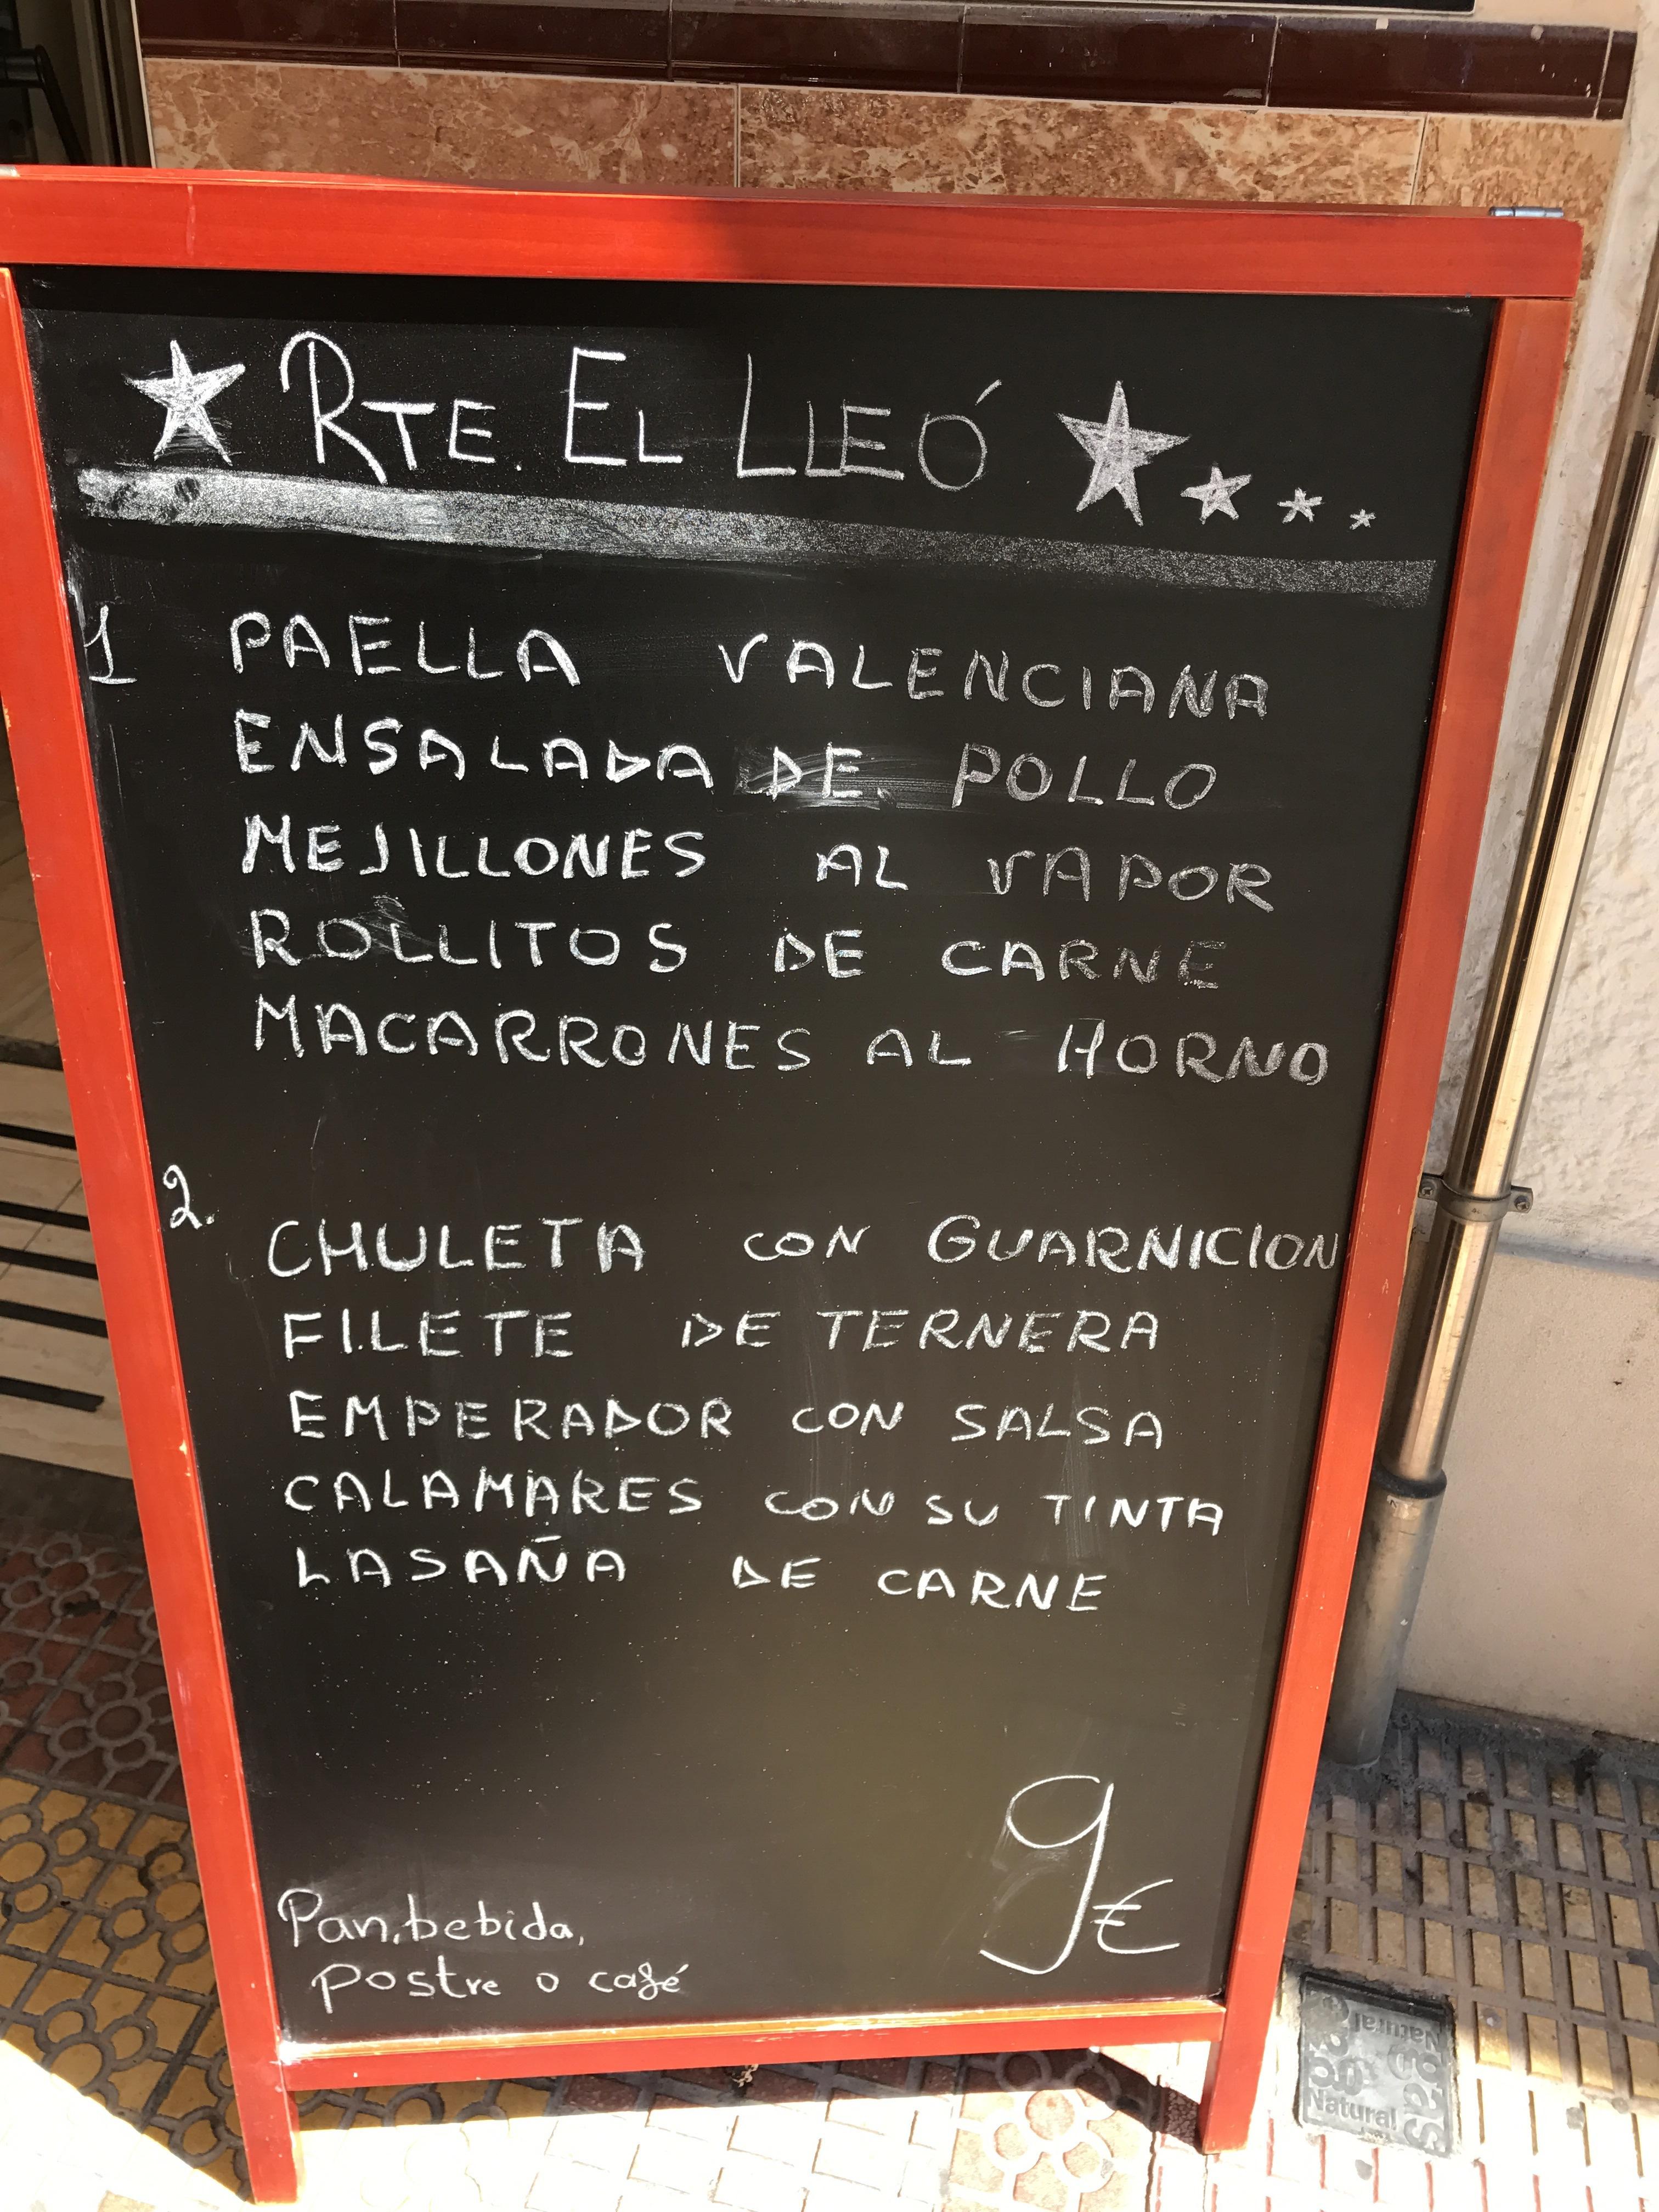 RTE. EL LLEÓ
1 PAELLA VALENCIANA
ENSALADA DE POLLO
MEJILLONES AL VAPOR
ROLLITOS DE CARNE
MACARRONES AL HORNO
2. CHULETA CON GUARNICION
FILETE DE TERNERA
EMPERADOR CON SALSA
CALAMARES CON SU TINTA
LASAÑA DE CARNE
9€
Pan, bebida,
postre o café
Gas
Natural
Gas
Natural